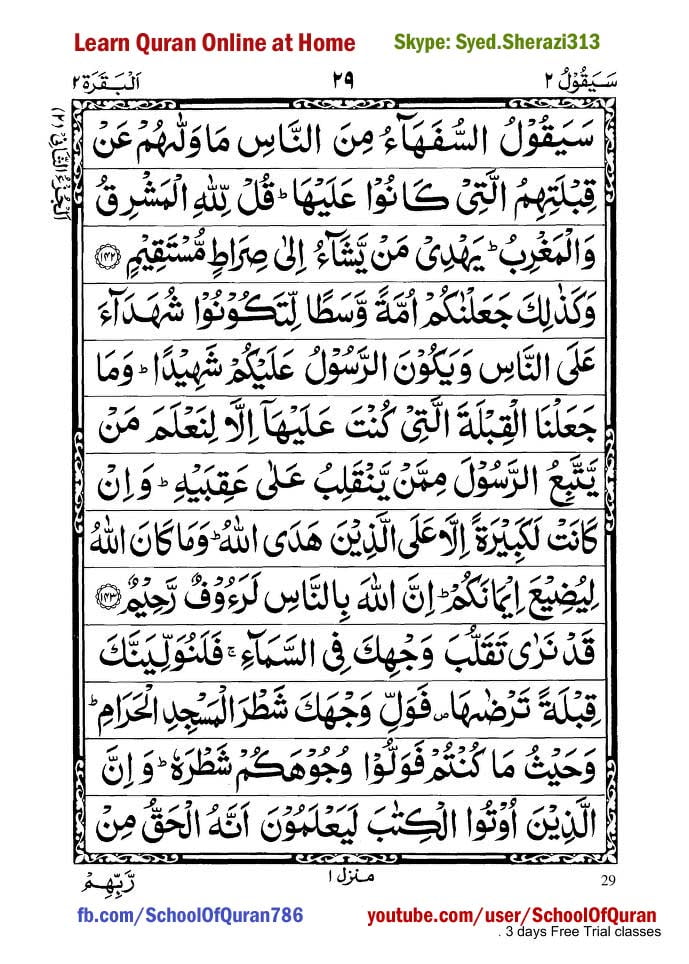 Learn Quran Online at Home
Skype: Syed.Sherazi313
سَيَقُوْلُ ٢
٢٩
اَلْبَقَرَة ٢
سَيَقُوْلُ السُّفَهَآءُ مِنَ النَّاسِ مَا وَلّٰىهُمْ عَنْ
قِبْلَتِهِمُ الَّتِیْ كَانُوْا عَلَيْهَا ؕ قُلْ لِّلّٰهِ الْمَشْرِقُ
وَالْمَغْرِبُ ؕ يَهْدِیْ مَنْ يَّشَآءُ اِلٰى صِرَاطٍ مُّسْتَقِيْمٍ ﴿١٤٢﴾
وَكَذٰلِكَ جَعَلْنٰكُمْ اُمَّةً وَّسَطًا لِّتَكُوْنُوْا شُهَدَآءَ
عَلَى النَّاسِ وَيَكُوْنَ الرَّسُوْلُ عَلَيْكُمْ شَهِيْدًا ؕ وَمَا
جَعَلْنَا الْقِبْلَةَ الَّتِیْ كُنْتَ عَلَيْهَآ اِلَّا لِنَعْلَمَ مَنْ
يَّتَّبِعُ الرَّسُوْلَ مِمَّنْ يَّنْقَلِبُ عَلٰى عَقِبَيْهِ ؕ وَاِنْ
كَانَتْ لَكَبِيْرَةً اِلَّا عَلَى الَّذِيْنَ هَدَى اللّٰهُ ؕ وَمَا كَانَ اللّٰهُ
لِيُضِيْعَ اِيْمَانَكُمْ ؕ اِنَّ اللّٰهَ بِالنَّاسِ لَرَءُوْفٌ رَّحِيْمٌ ﴿١٤٣﴾
قَدْ نَرٰى تَقَلُّبَ وَجْهِكَ فِی السَّمَآءِ ۚ فَلَنُوَلِّيَنَّكَ
قِبْلَةً تَرْضٰىهَا ۪ فَوَلِّ وَجْهَكَ شَطْرَ الْمَسْجِدِ الْحَرَامِ ؕ
وَحَيْثُ مَا كُنْتُمْ فَوَلُّوْا وُجُوْهَكُمْ شَطْرَهٗ ؕ وَاِنَّ
الَّذِيْنَ اُوْتُوا الْكِتٰبَ لَيَعْلَمُوْنَ اَنَّهُ الْحَقُّ مِنْ
29
منزل ١
رَّبِّهِمْ
fb.com/SchoolOfQuran786
youtube.com/user/SchoolOfQuran
. 3 days Free Trial classes